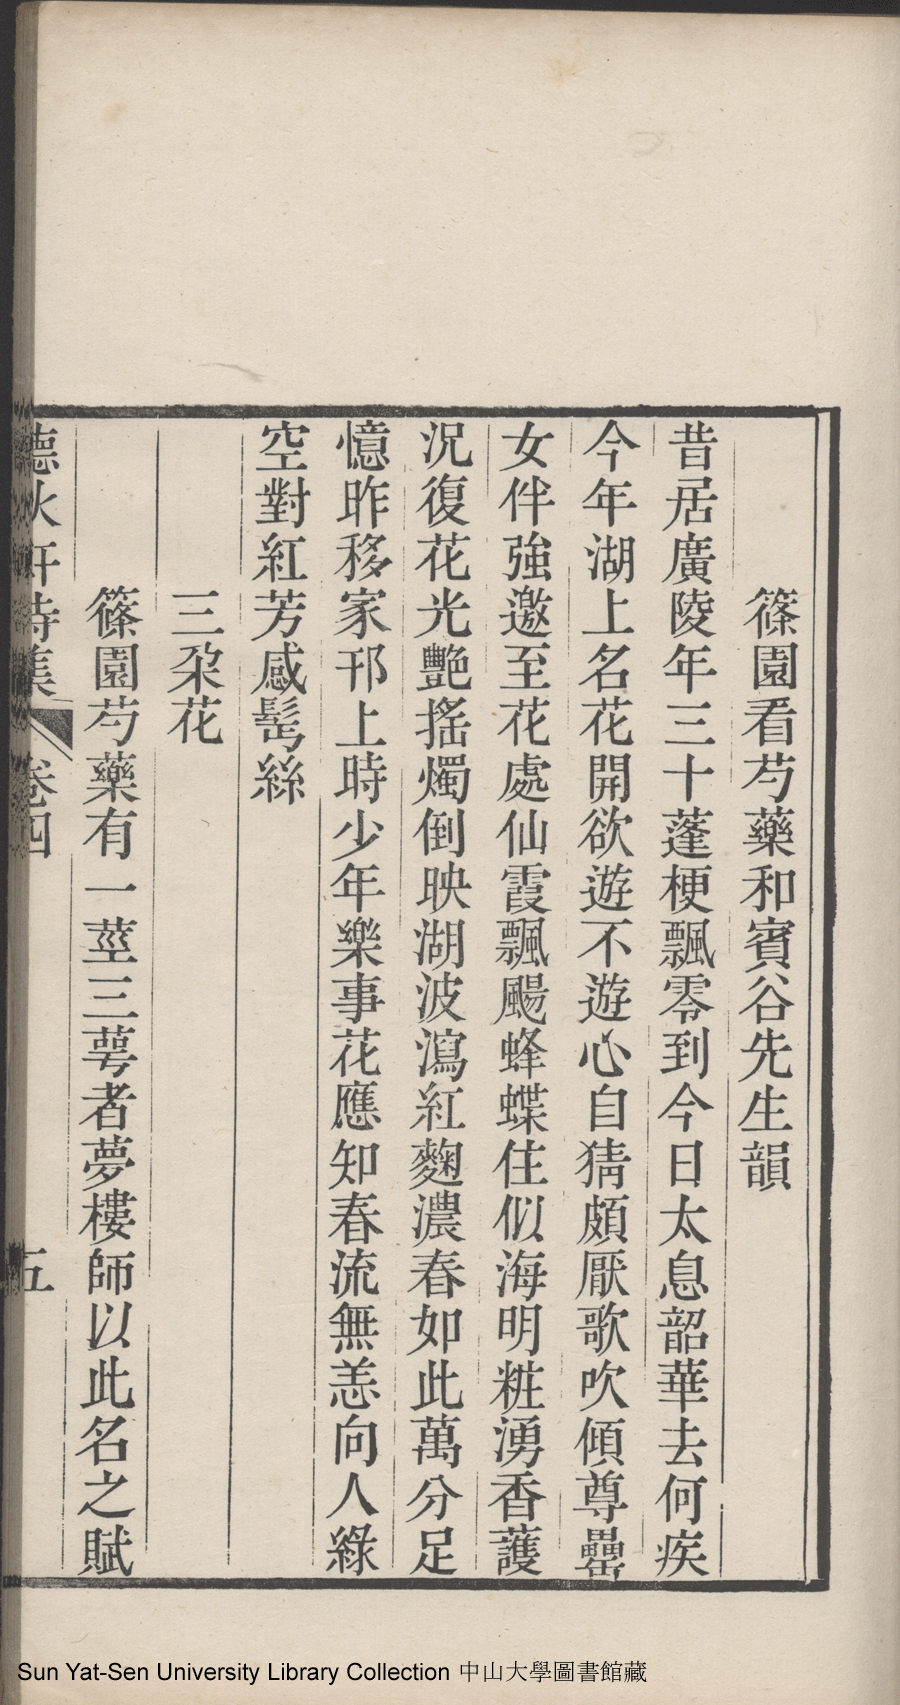 篠園看芍藥和賓谷先生韻
昔居廣陵年三十蓬梗飄零到今日太息韶華去何疾
今年湖上名花開欲遊不遊心自猜頗厭歌吹傾尊罍
女伴強邀至花處仙霞飄颺蜂蝶住似海明粧湧香護
況復花光艷搖燭倒映湖波瀉紅麴濃春如此萬分足
憶昨移家邗上時少年樂事花應知春流無恙向人綠
空對紅芳感髩絲
三朶花
篠園芍藥有一莖三萼者夢樓師以此名之賦
聽秋軒詩集 卷四 五
Sun Yat-Sen University Library Collection 中山大學圖書館藏